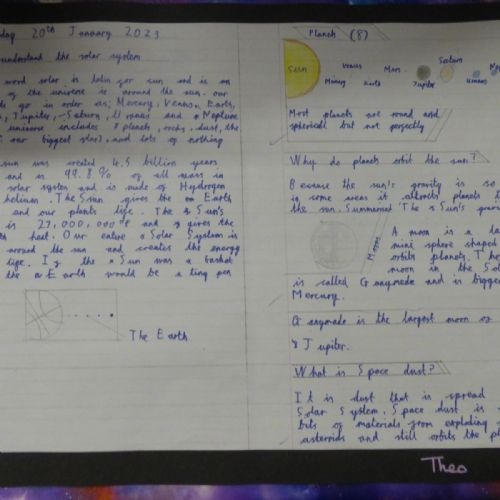 day 20th January 2023
understand the solar system
word solar is latin for sun and is an
of the universe is around the sun. our
go in order as; Mercury, Venus, Earth,
, Jupiter, Saturn, Uranus and Neptune
universe includes 8 planets, rocks, dust, the
our biggest star), and lots of nothing
sun was created 4.5 billion years
and is 99.8% of all mass in
solar system and is made of Hydrogen
helium. The Sun gives the Earth
and our plants life. The Sun's
is 27,000,000°F and gives the
heat. Our entire Solar System is
around the sun and creates the energy
life. If the Sun was a basket
the Earth would be a tiny pen
The Earth
Planets (8)
Sun
Venus
Mercury
Earth
Mars
Jupiter
Saturn
Uranus
Most planets are round and
spherical but not perfectly
Why do planets orbit the sun?
Because the sun's gravity is so
in some areas it attracts planets
the sun. Summarised: The Sun's gravi
Moons
A moon is a la
mini sphere shaped
orbits planets. The
moon in the Sola
is called Ganymede and is bigge
Mercury.
Ganymede is the largest moon of
Jupiter.
What is Space dust?
It is dust that is spread
Solar System. Space dust is
bits of materials from exploding
asteroids and still orbits the pl
Theo